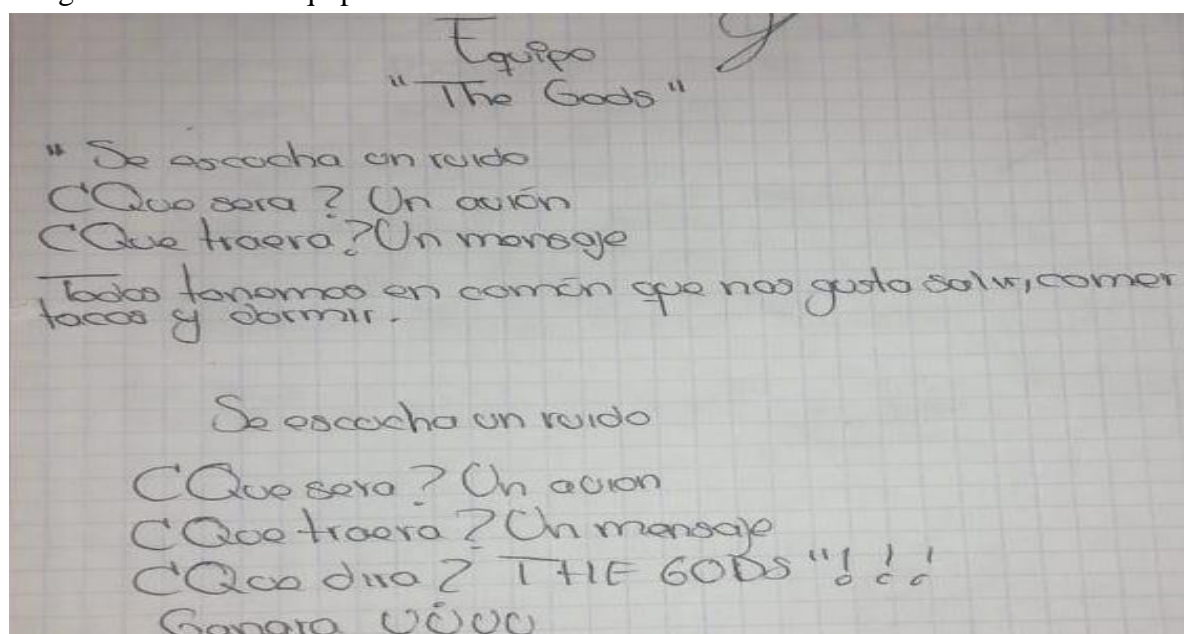 Equipo
"The Gods"
"Se escucha un ruido
¿Que sera? Un avión
¿Que traera? Un mensaje
Todos tenemos en común que nos gusta salir, comer
tacos y dormir.
Se escucha un ruido
¿Que sera? Un avion
¿Que traera? Un mensaje
¿Que dira? THE GODS"!!!
Ganara